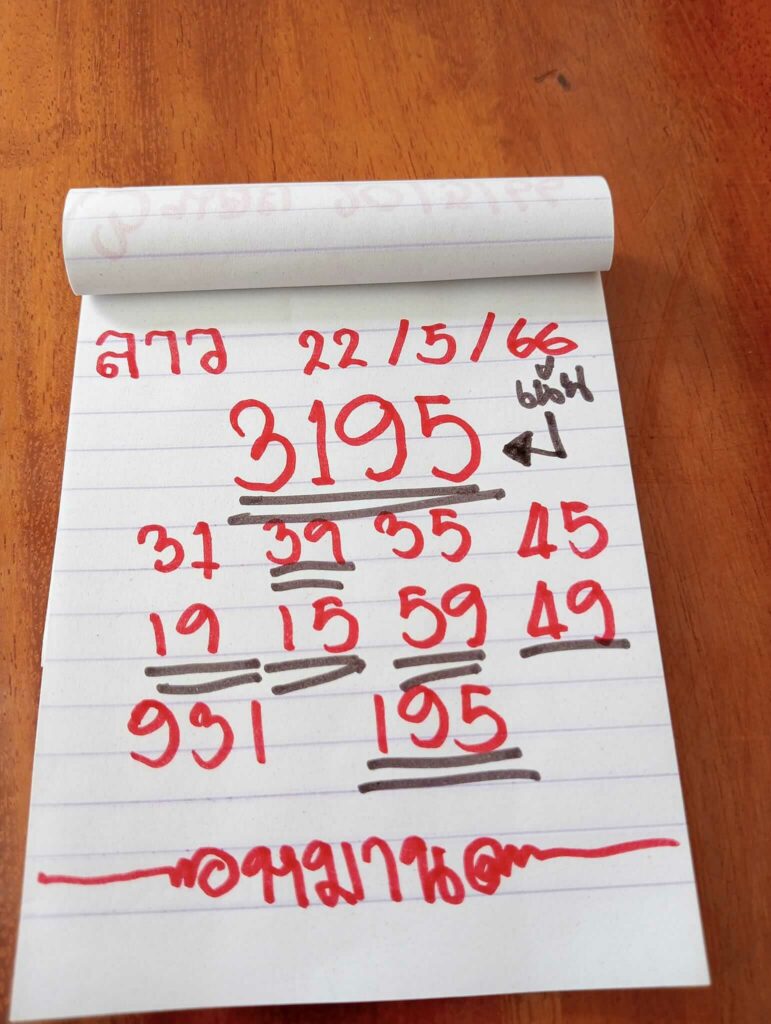 ลาว 22/5/66
เน้น
3195
31 39 35 45
19 15 59 49
931 195
หมาน